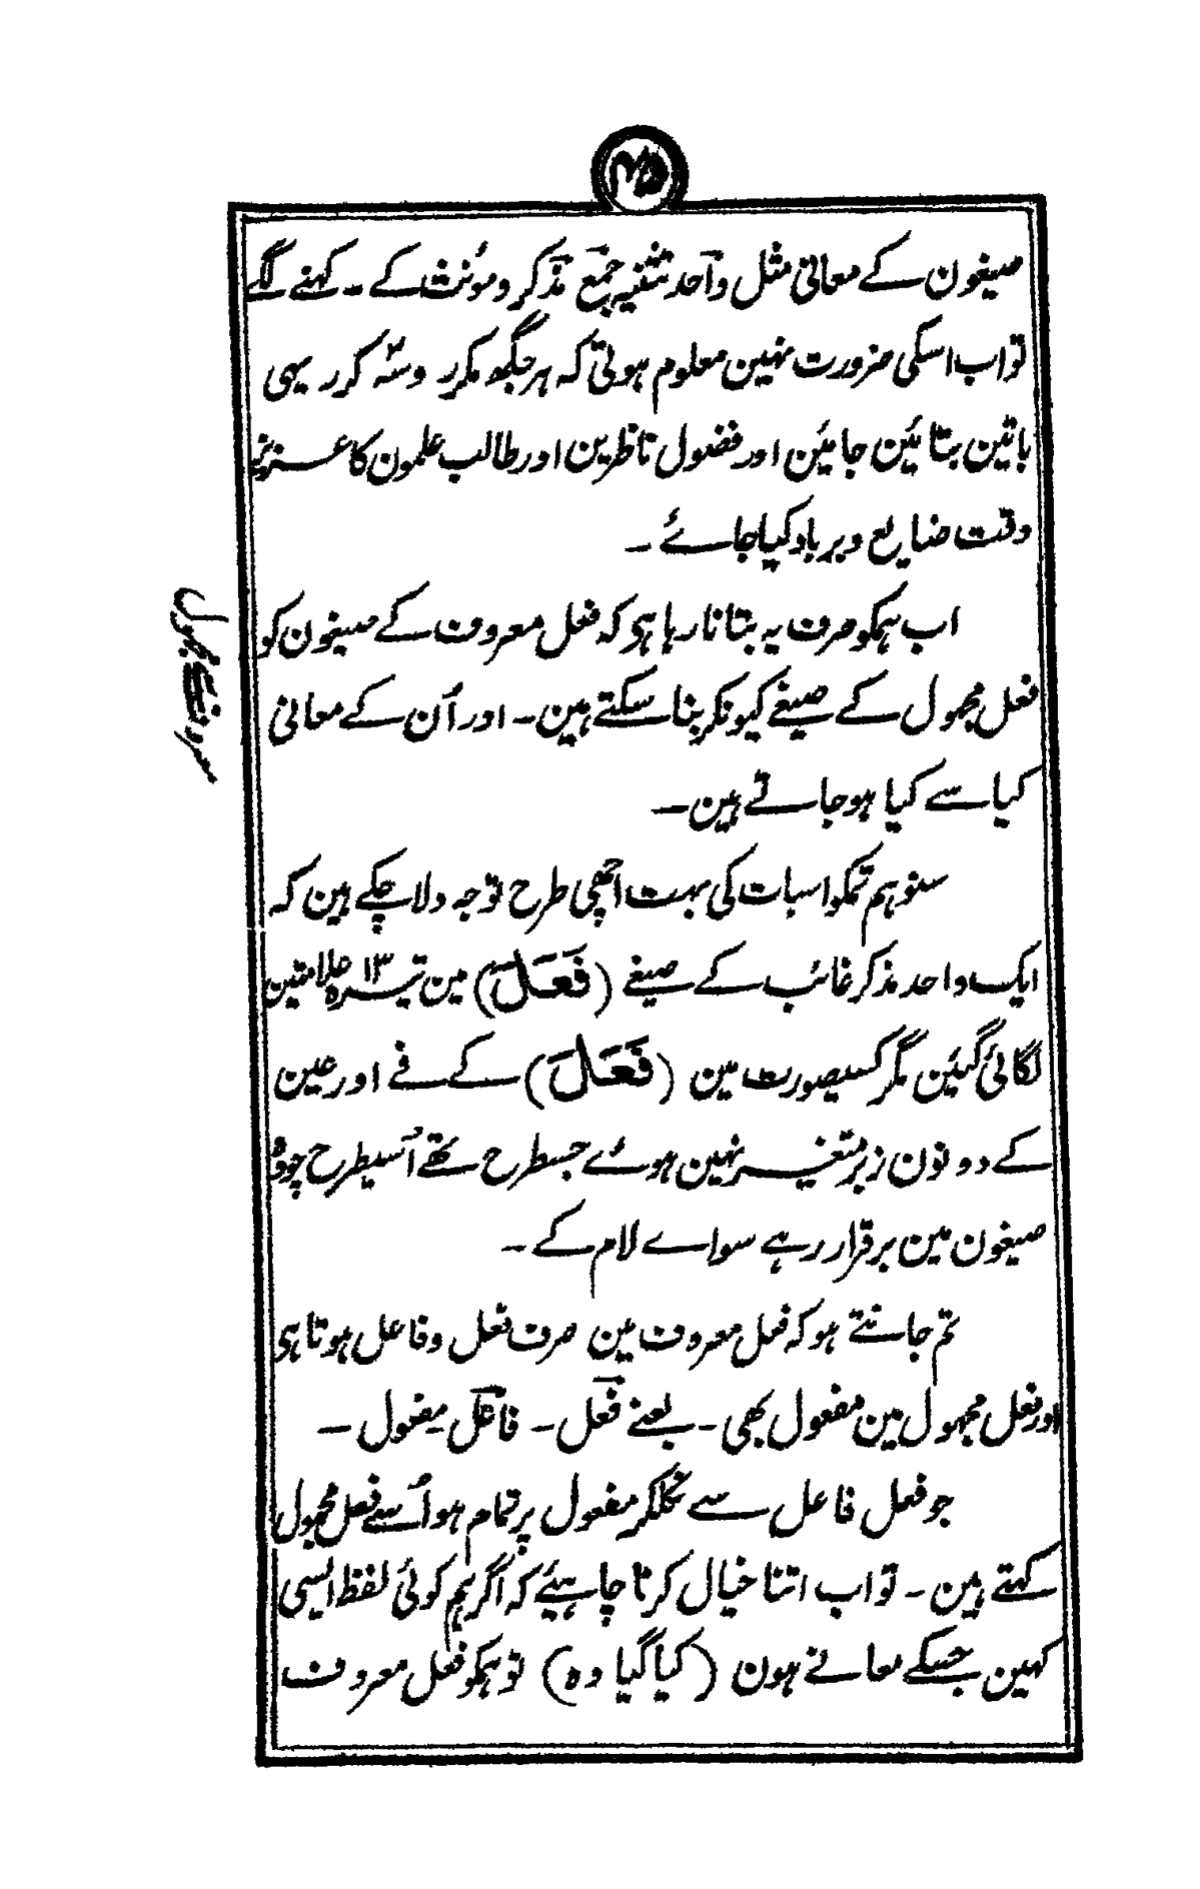 صیغون کے معانی مثل واحد تثنیہ جمع مذکر و مونث کے ۔ کہنے لگے
تو اب اسکی ضرورت نہین معلوم ہوتی کہ ہر جگھ مکرر و سہ کرر یہی
باتین بتائین جائین اور فضول ناظرین اور طالب علمون کا عزیز
وقت ضایع و برباد کیا جائے ۔
اب ہمکو صرف یہ بتانا رہا ہی کہ فعل معروف کے صیغون کو
فعل مجہول کے صیغے کیونکر بنا سکتے ہین ۔ اور اُن کے معانی
کیا سے کیا ہو جاتے ہین ۔
سنو ہم تمکو اسبات کی بہت اچھی طرح توجہ دلا چکے ہین کہ
ایک واحد مذکر غائب کے صیغے (فَعَلَ) مین تیرہ ۱۳ علامتین
لگائی گئین مگر کسیصورت مین (فَعَلَ) کے فے اور عین
کے دونون زبر متغیر نہین ہوئے جسطرح تھے اُسیطرح چودہ
صیغون مین برقرار رہے سواے لام کے ۔
تم جانتے ہو کہ فعل معروف مین صرف فعل و فاعل ہوتا ہی
اور فعل مجہول مین مفعول بھی ۔ یعنے فعل ۔ فاعل مفعول ۔
جو فعل فاعل سے نکلکر مفعول پر تمام ہو اُسے فعل مجہول
کہتے ہین ۔ تو اب اتنا خیال کرنا چاہیئے کہ اگر ہم کوئی لفظ ایسی
کہین جسکے معانے ہون (کیا گیا وہ) تو ہمکو فعل معروف